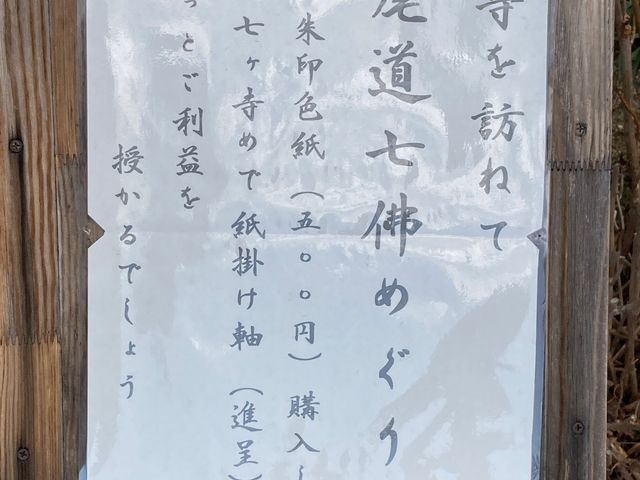 寺を訪ねて
尾道七佛めぐり
朱印色紙（五〇〇円）購入し
七ヶ寺めで紙掛け軸（進呈）
っとご利益を
授かるでしょう